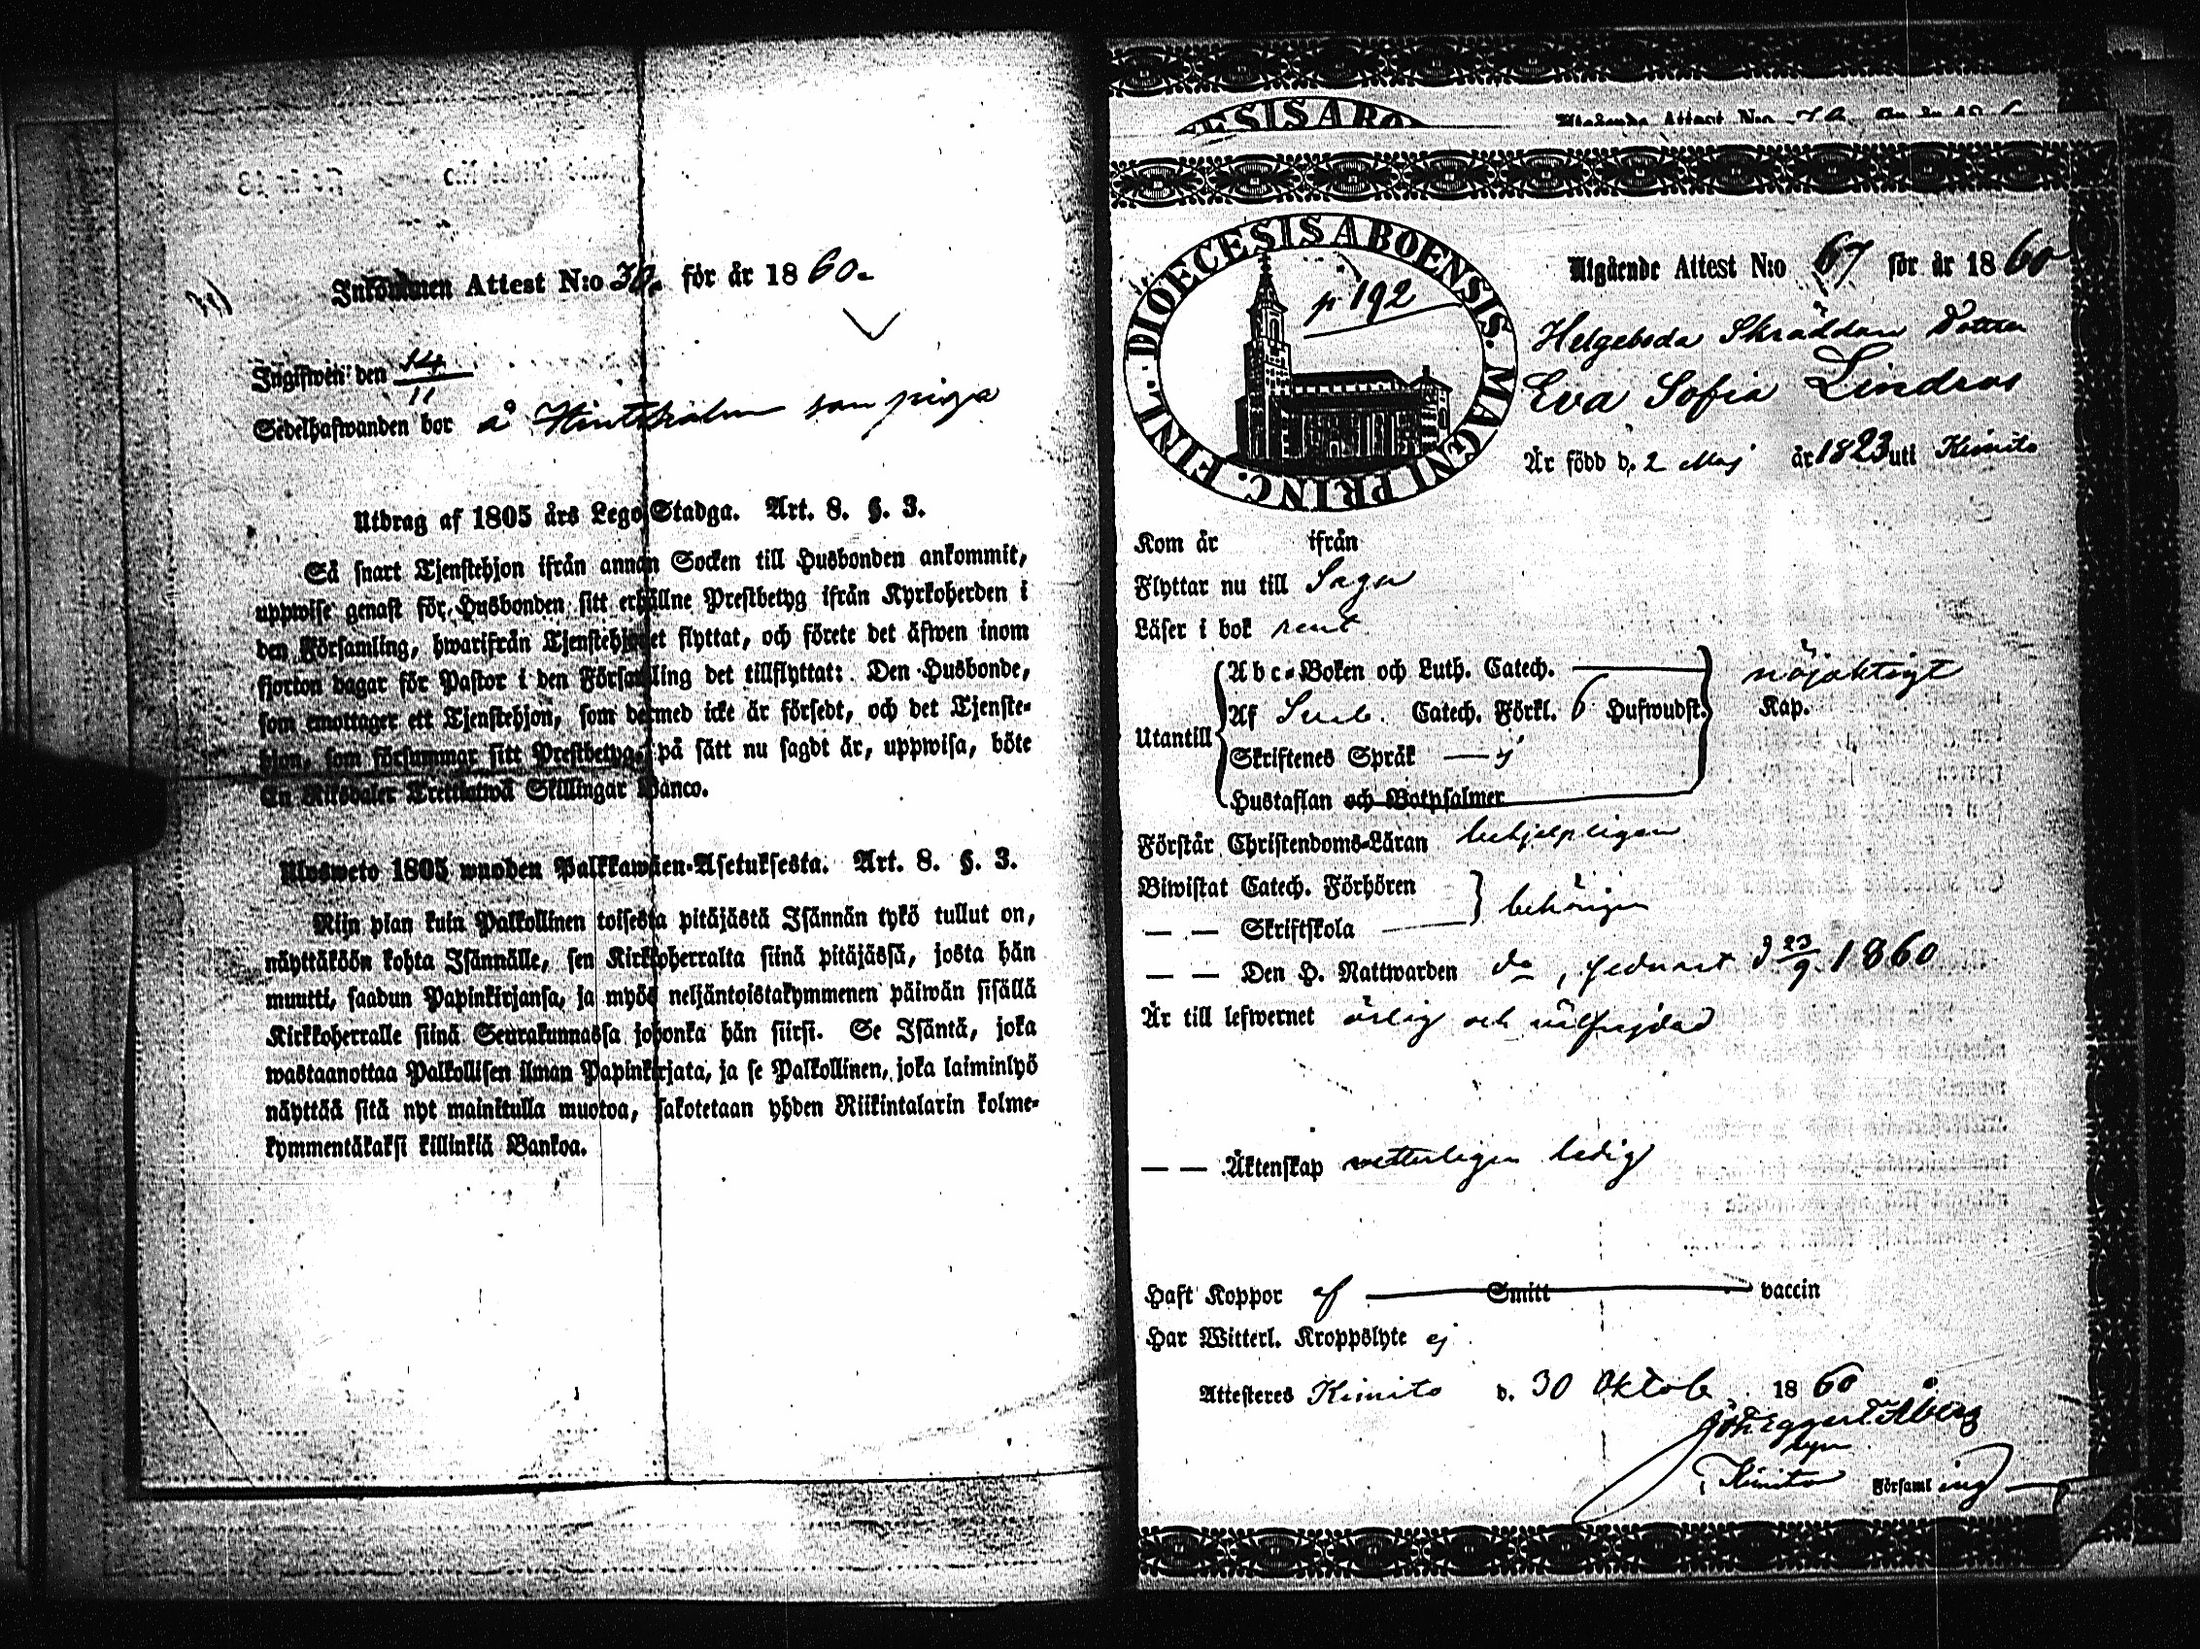 Inkommen Attest N:o 30. för år 1860.
Ingifwen den 14/11
Sedelhafwanden bor å som piga
Utdrag af 1805 års Lego-Stadga. Art. 8. §. 3.
Så snart Tjenstehjon ifrån annan Socken till Husbonden ankommit,
uppwise genast för Husbonden sitt erhållne Prestbetyg ifrån Kyrkoherden i
den Församling, hwarifrån Tjenstehjonet flyttat, och förete det äfwen inom
fjorton dagar för Pastor i den Församling det tillflyttat: Den Husbonde,
som emottager ett Tjenstehjon, som dermed icke är försedt, och det Tjenste-
hjon, som försummar sitt Prestbetyg, på sätt nu sagdt är, uppwisa, böte
En Riksdaler Trettiotwå Skillingar Banco.
Ulosweto 1805 wuoden Palkkawäen-Asetuksesta. Art. 8. §. 3.
Niin pian kuin Palkollinen toisesta pitäjästä Isännän tykö tullut on,
näyttäköön kohta Isännälle, sen Kirkkoherralta siinä pitäjässä, josta hän
muutti, saadun Papinkirjansa, ja myös neljäntoistakymmenen päiwän sisällä
Kirkkoherralle siinä Seurakunnassa johonka hän siirsi. Se Isäntä, joka
wastaanottaa Palkollisen ilman Papinkirjata, ja se Palkollinen, joka laiminlyö
näyttää sitä nyt mainitulla muotoa, sakotetaan yhden Riikintalarin kolme-
kymmentäkaksi killinkiä Bankoa.
Utgående Attest N:o
DIOECESIS ABOENSIS. MAGNI PRINC. FINL.
p 192
Utgående Attest N:o 67 för år 1860
Helgeboda Skräddare Dotter
Eva Sofia Lindroos
Är född d. 2 Maj år 1823 uti Kimito
Kom år ifrån
Flyttar nu till Sagu
Läser i bok rent
Utantill
Abc-Boken och Luth. Catech. nöjaktigt
Af Sweb. Catech. Förkl. 6 Hufwudst. Kap.
Skriftenes Språk — ej
Hustaflan och Botpsalmer
Förstår Christendoms-Läran behjelpligen
Biwistat Catech. Förhören
— — Skriftskola behörigen
— — Den H. Nattwarden do, sednast d 23/9 1860
Är till lefwernet ärlig och välfrejdad
— — Äktenskap vetterligen ledig
Haft Koppor af Smitt vaccin
Har Witterl. Kroppslyte ej
Attesteres Kimito d. 30 Oktob. 1860
Joh. Eggert Åberg
Kimito Församling